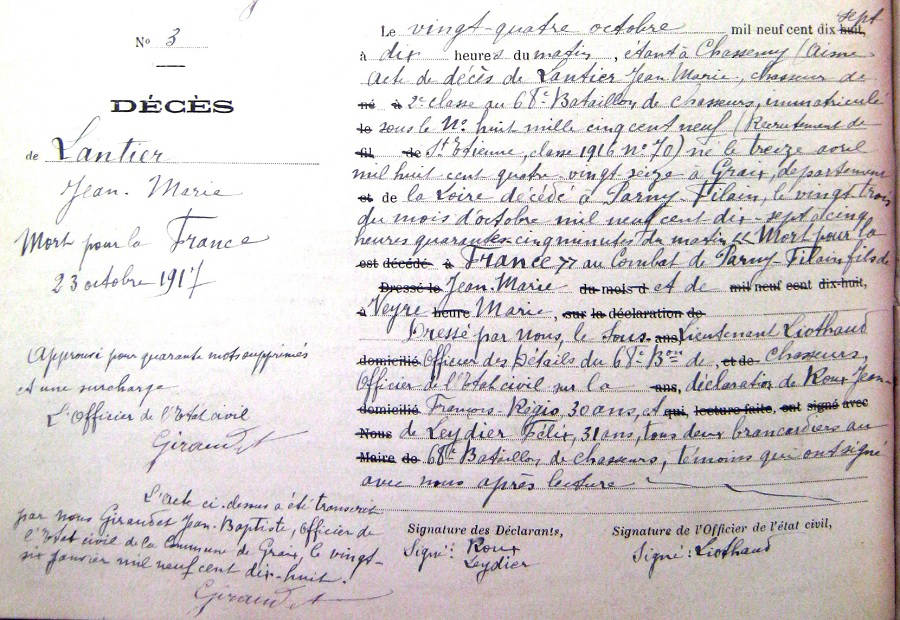 N° 3
DÉCÈS
de Lantier
Jean-Marie
Mort pour la France
23 octobre 1917
Approuvé pour quarante mots supprimés
et une surcharge
L'Officier de l'Etat civil
Giraudet
L'acte ci-dessus a été transcrit
par nous Giraudet Jean-Baptiste, officier de
l'Etat civil de la Commune de Graix, le vingt-
six janvier mil neuf cent dix-huit.
Giraudet
Le vingt-quatre octobre mil neuf cent dix huit, sept
à dix heures du matin, étant à Chassemy (Aisne
acte de décès de Lantier Jean Marie, chasseur de
né à 2e classe au 68e Bataillon de chasseurs, immatriculé
le sous le N° huit mille cinq cent neuf (Recrutement de
fil de St Etienne, classe 1916 n° 70) né le treize avril
mil huit cent quatre-vingt seize à Graix, département
et de la Loire décédé à Parny-Filain, le vingt trois
du mois d'octobre mil neuf cent dix-sept à cinq
heures quarante-cinq minutes du matin "Mort pour la
est décédé à France" au Combat de Parny-Filain fils de
Dressé le Jean-Marie du mois d et de mil neuf cent dix-huit,
à Veyre heure Marie, sur la déclaration de
Dressé par nous, le Sous- ans, Lieutenant Liothaud
domicilié Officier des Détails du 68e Bon de , et de Chasseurs,
Officier de l'Etat civil sur la ans, déclaration de Roux Jean-
domicilié François-Régis, 30 ans, et qui, lecture faite, ont signé avec
Nous de Leydier Félix, 31 ans, tous deux brancardiers au
Maire de 68e Bataillon de chasseurs, témoins qui ont signé
avec nous après lecture
Signature des Déclarants, Signature de l'Officier de l'état civil,
Signé: Roux Signé: Liothaud
Leydier